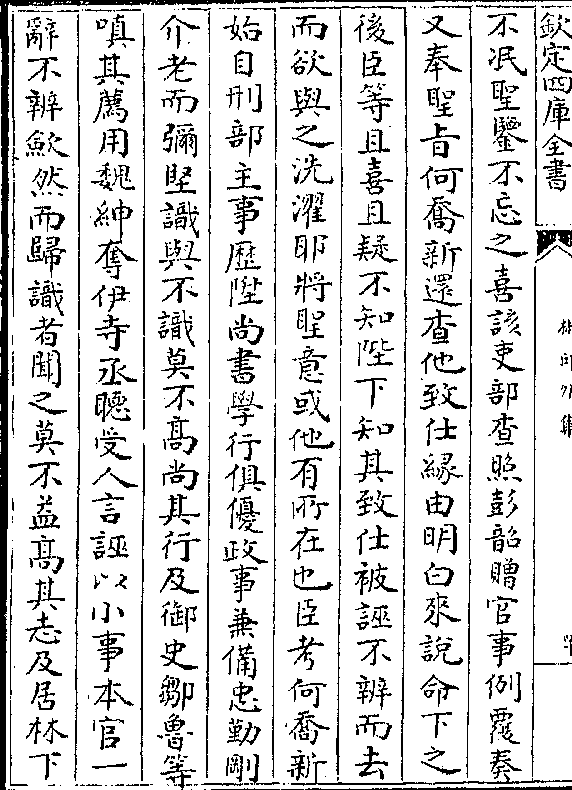 欽定四庫全書
不泯聖鑒不忘之喜該吏部查照彭韶贈官事例覆奏
又奉聖旨何喬新還查他致仕緣由明白來說命下之
後臣等且喜且疑不知陛下知其致仕被誣不辨而去
而欲與之洗濯耶將聖意或他有所在也臣考何喬新
始自刑部主事歷陞尚書學行俱優政事兼備忠勤剛
介老而彌堅識與不識莫不高尚其行及御史鄒魯等
嗔其薦用魏紳奪伊寺丞聽受人言誣以小事本官一
辭不辨歉然而歸識者聞之莫不益高其志及居林下